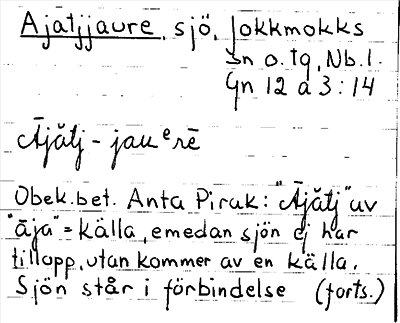 Ajatjjaure, sjö, Jokkmokks
Sn o. tg, Nb. l.
Gn 12 a 3:14
Ājătj-jauᵉrē
Obek. bet. Anta Pirak: "Ājătj" av
"āja" = källa, emedan sjön ej har
tillopp, utan kommer av en källa.
Sjön står i förbindelse (forts.)